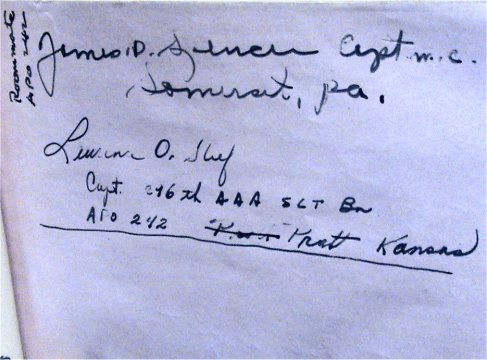 Roommate
APO 242
James D. Spencer Capt. M.C.
Somerset, Pa.
O.
Capt. 296th AAA SLT Bn
APO 242 Pratt Kansas